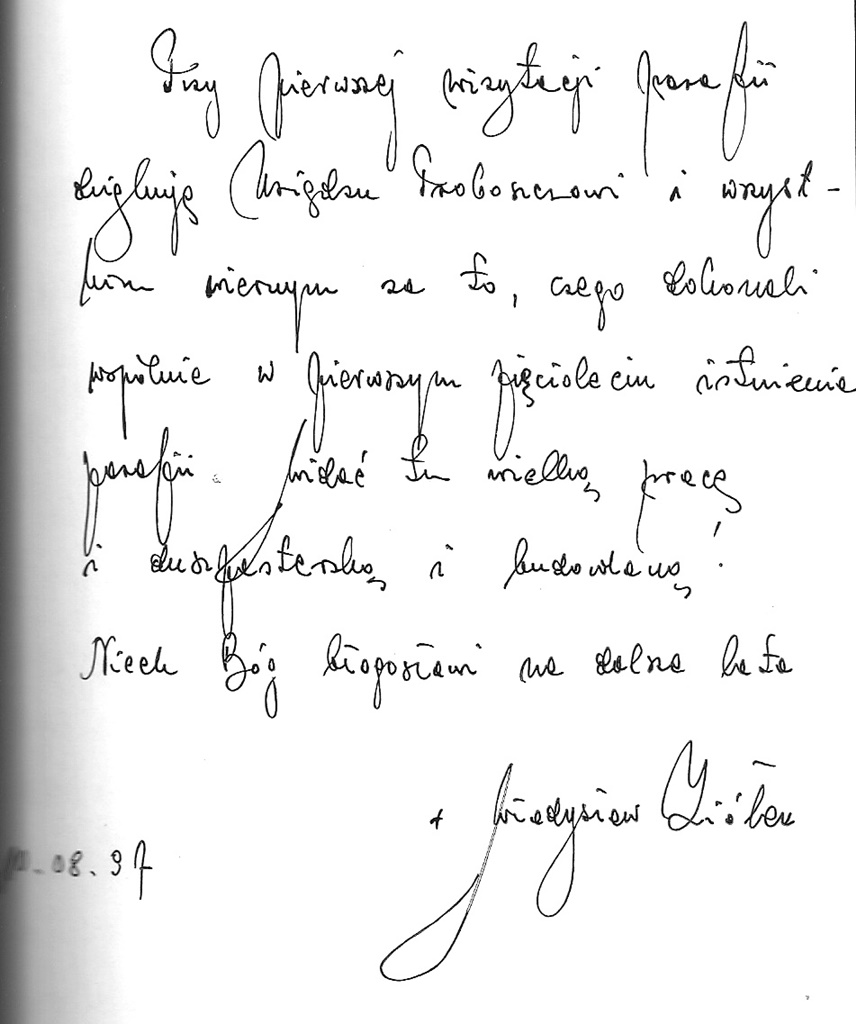 Przy pierwszej wizytacji parafii
dziękuję Księdzu Proboszczowi i wszyst-
kim wiernym za to, czego dokonali
wspólnie w pierwszym pięcioleciu istnienia
parafii. Widać tu wielką pracę
i duszpasterską i budowlaną!
Niech Bóg błogosławi na dalsze lata
+ Władysław Ziółek
08.97